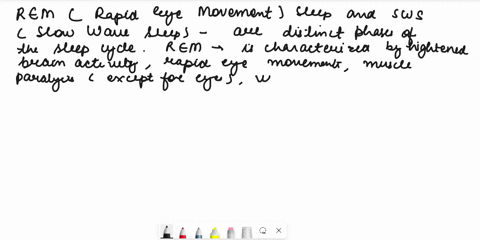 REM ( Rapid eye Movement ) Sleep and SWS
( Slow Wave Sleep) - are distinct phases of
the sleep cycle. REM → is characterized by hightened
brain activity, rapid eye movements, muscle
paralysis ( except for eyes), w